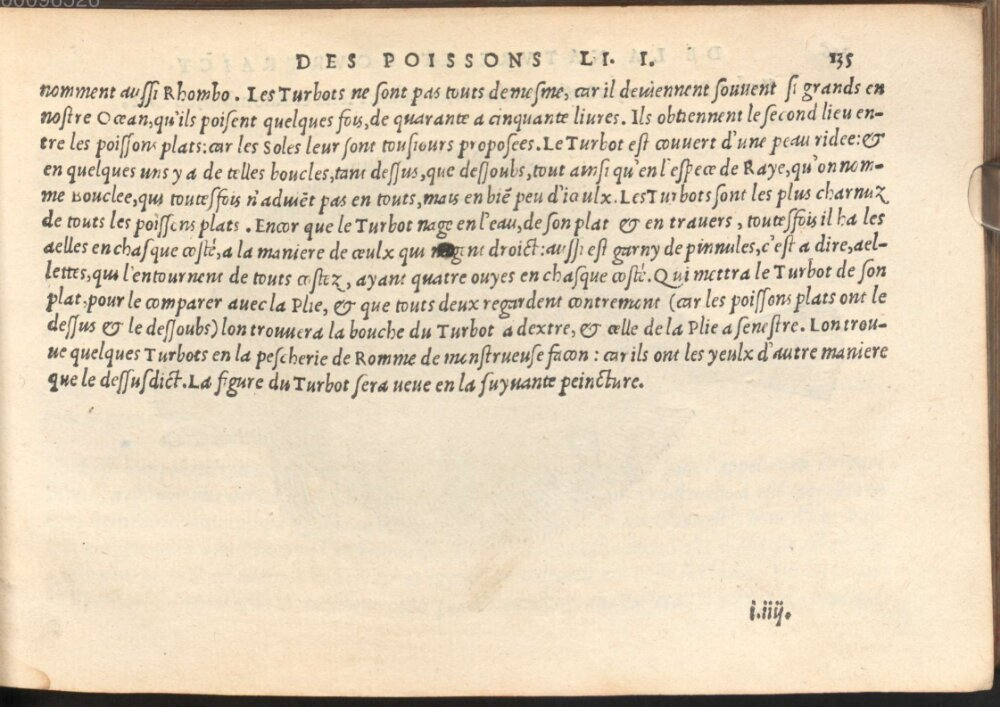 DES POISSONS LI. I. 135
nomment aussi Rhombo. Les Turbots ne sont pas touts de mesme, car il deviennent souvent si grands en
nostre Ocean, qu'ils poisent quelques fois, de quarante a cinquante livres. Ils obtiennent le second lieu en-
tre les poissons plats: car les Soles leur sont tousiours proposees. Le Turbot est couvert d'une peau ridee: &
en quelques uns y a de telles boucles, tant dessus, que dessoubs, tout ainsi qu'en l'espece de Raye, qu'on nom-
me Bouclee, qui toutesfois n'adviẽt pas en touts, mais en biẽ peu d'iceulx. Les Turbots sont les plus charnuz
de touts les poissons plats. Encor que le Turbot nage en l'eau, de son plat & en travers, toutesfois il ha les
aelles en chasque costé, a la maniere de ceulx qui nagent droict: aussi est garny de pinnules, c'est a dire, ael-
lettes, qui l'entournent de touts costez, ayant quatre ouyes en chasque costé. Qui mettra le Turbot de son
plat, pour le comparer avec la Plie, & que touts deux regardent contremont (car les poissons plats ont le
dessus & le dessoubs) lon trouvera la bouche du Turbot a dextre, & celle de la Plie a senestre. Lon trou-
ve quelques Turbots en la pescherie de Romme de monstrueuse facon: car ils ont les yeulx d'autre maniere
que le dessusdict. La figure du Turbot sera veue en la suyvante peincture.
i.iiij.